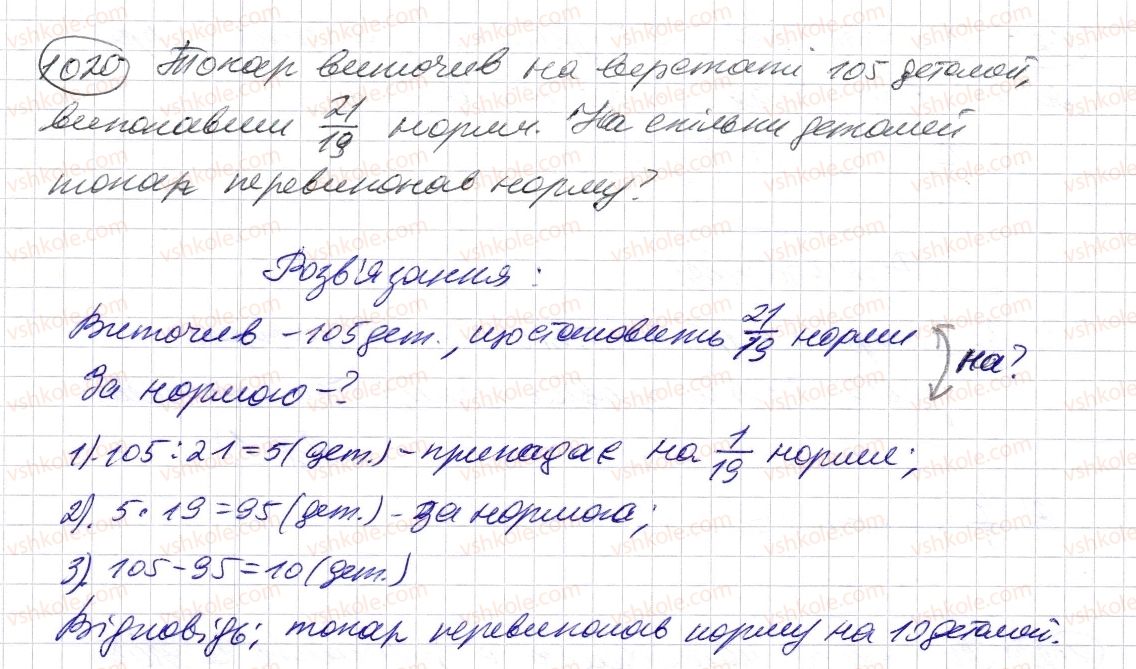 1020 Токар виточив на верстаті 105 деталей,
виконавши 21/19 норми. На скільки деталей
токар перевиконав норму?
Розв'язання:
Виточив – 105 дет., що становить 21/19 норми
на?
За нормою – ?
1). 105 : 21 = 5 (дет.) – припадає на 1/19 норми;
2). 5 · 19 = 95 (дет.) – за нормою;
3). 105 – 95 = 10 (дет.)
Відповідь; токар перевиконав норму на 10 деталей.